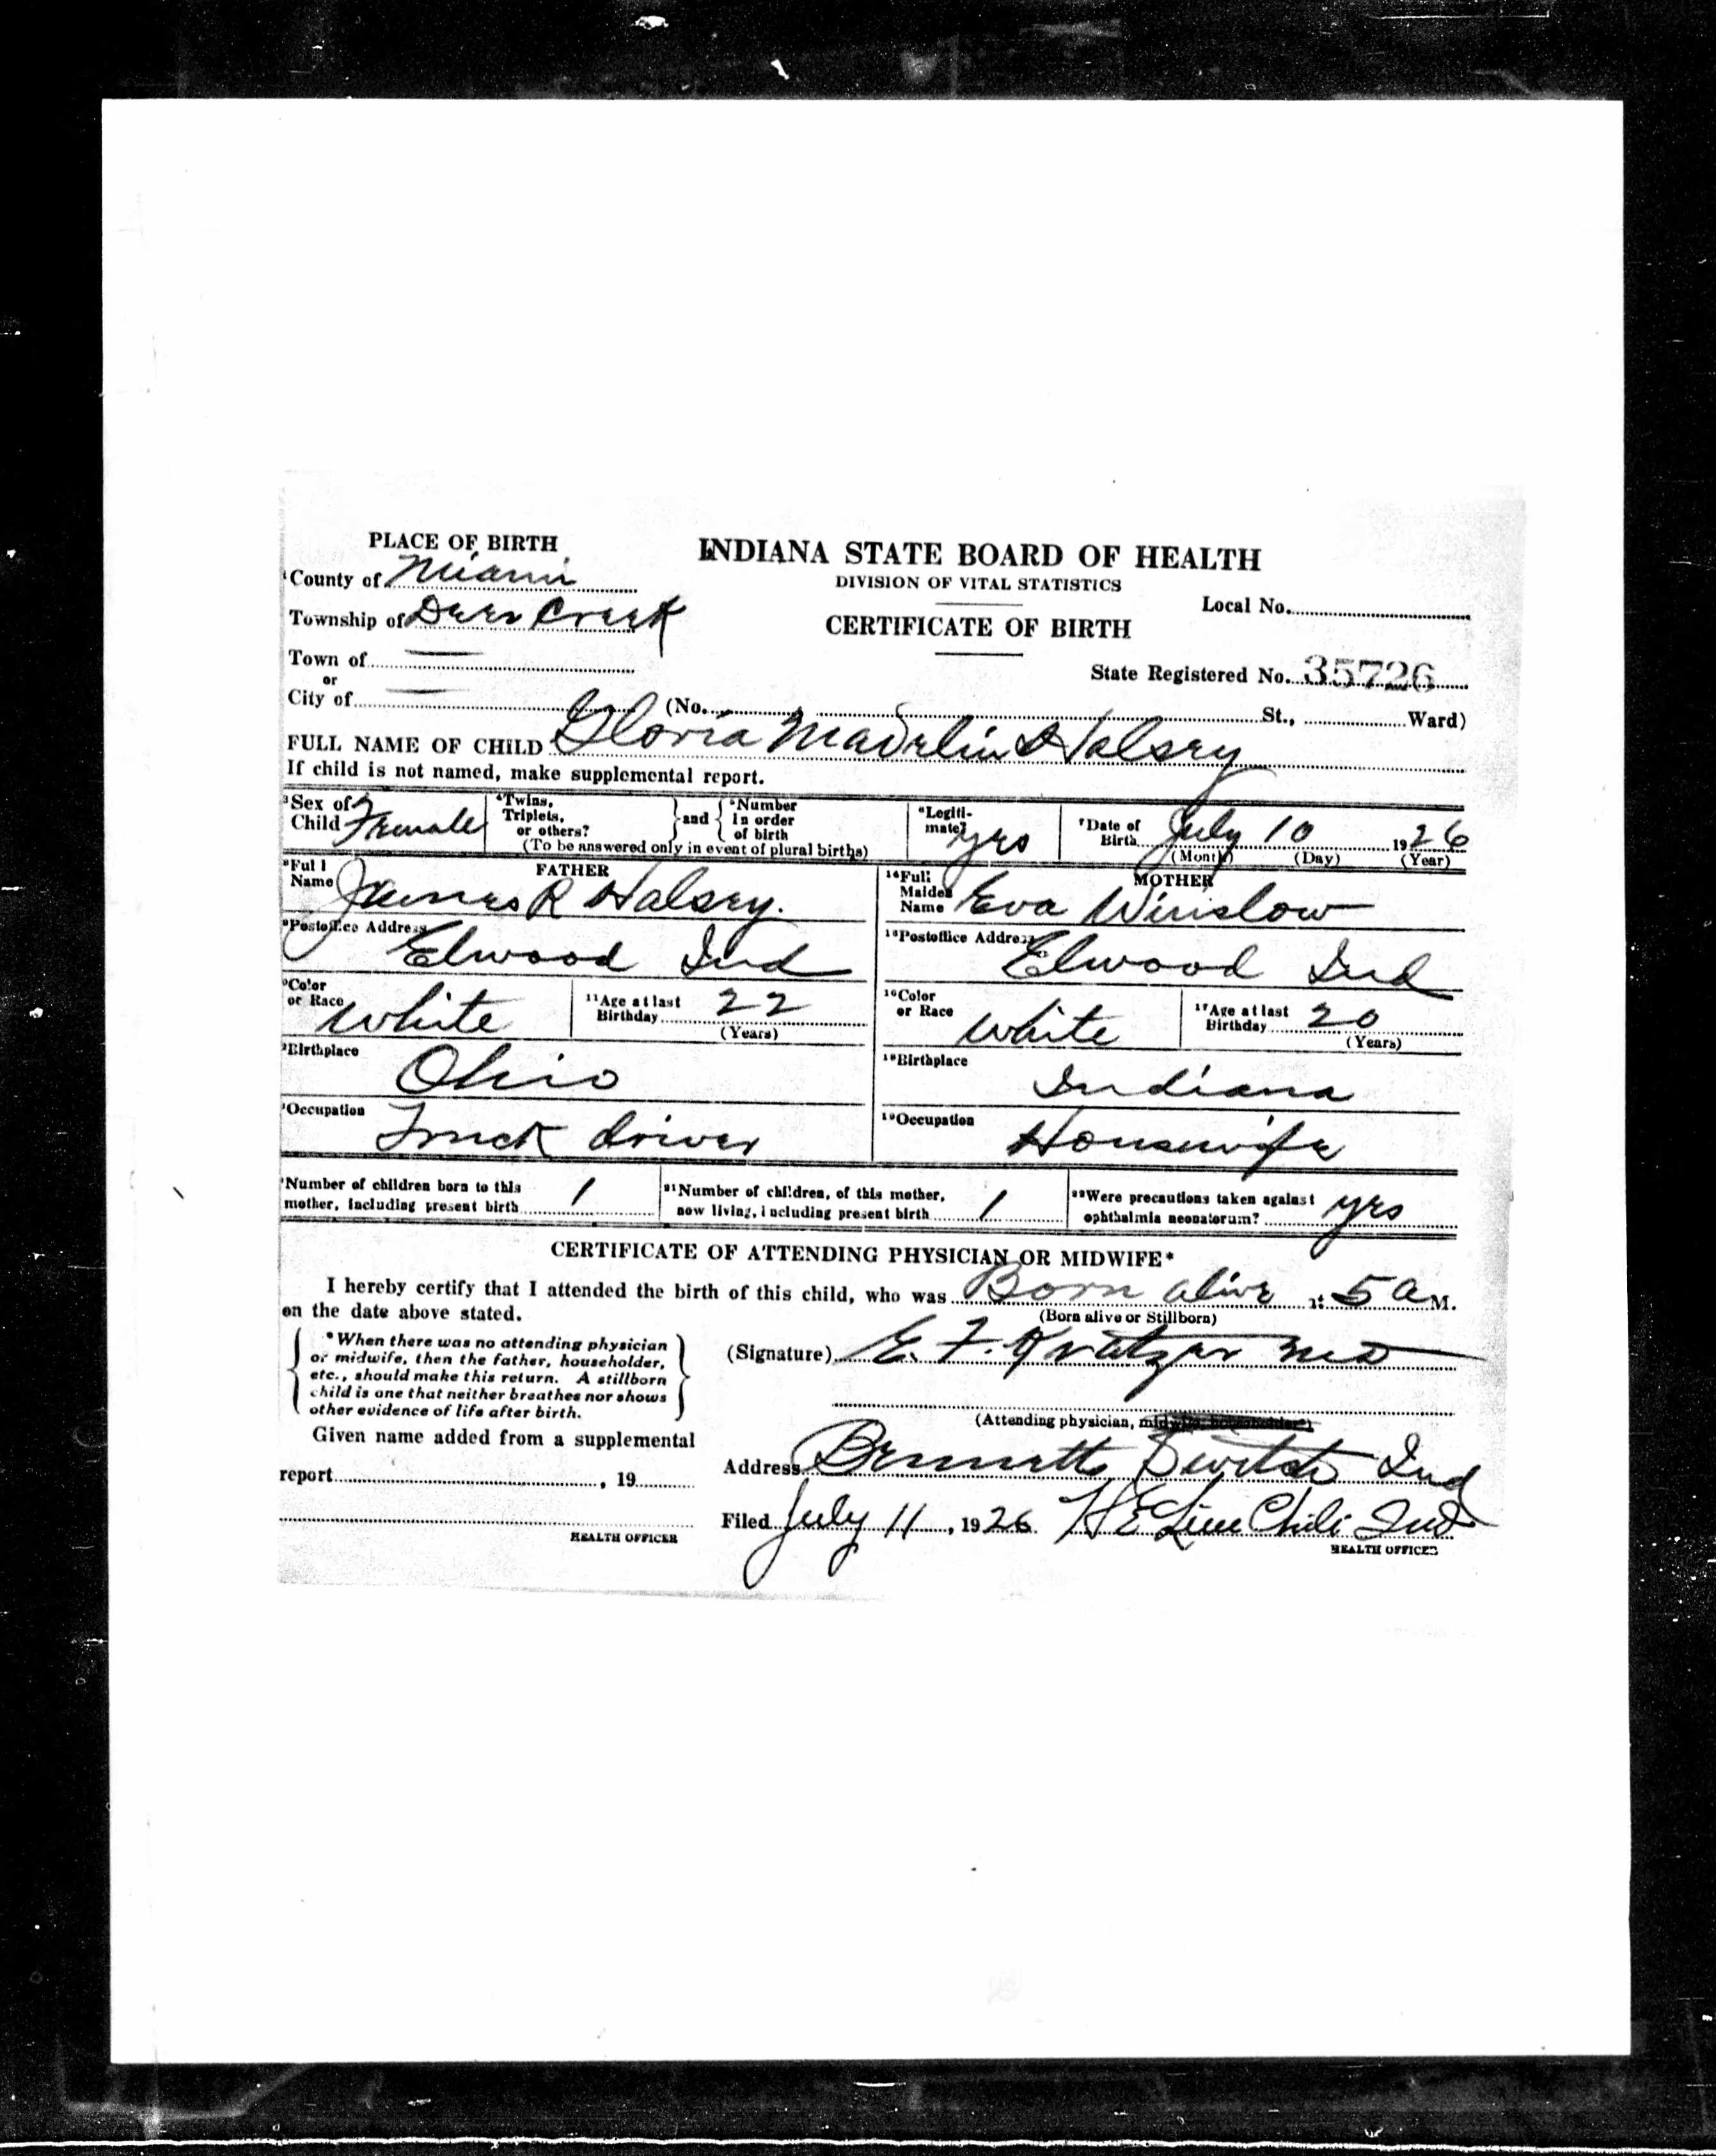 PLACE OF BIRTH
INDIANA STATE BOARD OF HEALTH
County of Miami
DIVISION OF VITAL STATISTICS
Local No.
Township of Deer Creek
CERTIFICATE OF BIRTH
Town of —
or
State Registered No. 35726
City of —
(No. St., Ward)
FULL NAME OF CHILD Gloria Madelin Halsey
If child is not named, make supplemental report.
Sex of Child Female
Twins, Triplets, or others? } and { Number in order of birth
(To be answered only in event of plural births)
Legitimate? yes
Date of Birth July 10 1926
(Month) (Day) (Year)
FATHER
Full Name James R Halsey.
Postoffice Address
Elwood Ind
Color or Race White
11 Age at last Birthday 22
(Years)
Birthplace
Ohio
Occupation
Truck driver
MOTHER
14 Full Maiden Name Eva Winslow
15 Postoffice Address
Elwood Ind
16 Color or Race White
17 Age at last Birthday 20
(Years)
18 Birthplace
Indiana
19 Occupation
Housewife
Number of children born to this mother, including present birth 1
21 Number of children, of this mother, now living, including present birth 1
22 Were precautions taken against ophthalmia neonatorum? yes
CERTIFICATE OF ATTENDING PHYSICIAN OR MIDWIFE*
I hereby certify that I attended the birth of this child, who was Born alive at 5 a M.
on the date above stated.
(Born alive or Stillborn)
*When there was no attending physician
or midwife, then the father, householder,
etc., should make this return. A stillborn
child is one that neither breathes nor shows
other evidence of life after birth.
(Signature) E. F. Kratzer MD
(Attending physician,
Given name added from a supplemental
report , 19
HEALTH OFFICER
Address Bennetts Switch Ind
Filed July 11, 1926 H E Line Chili Ind
HEALTH OFFICER